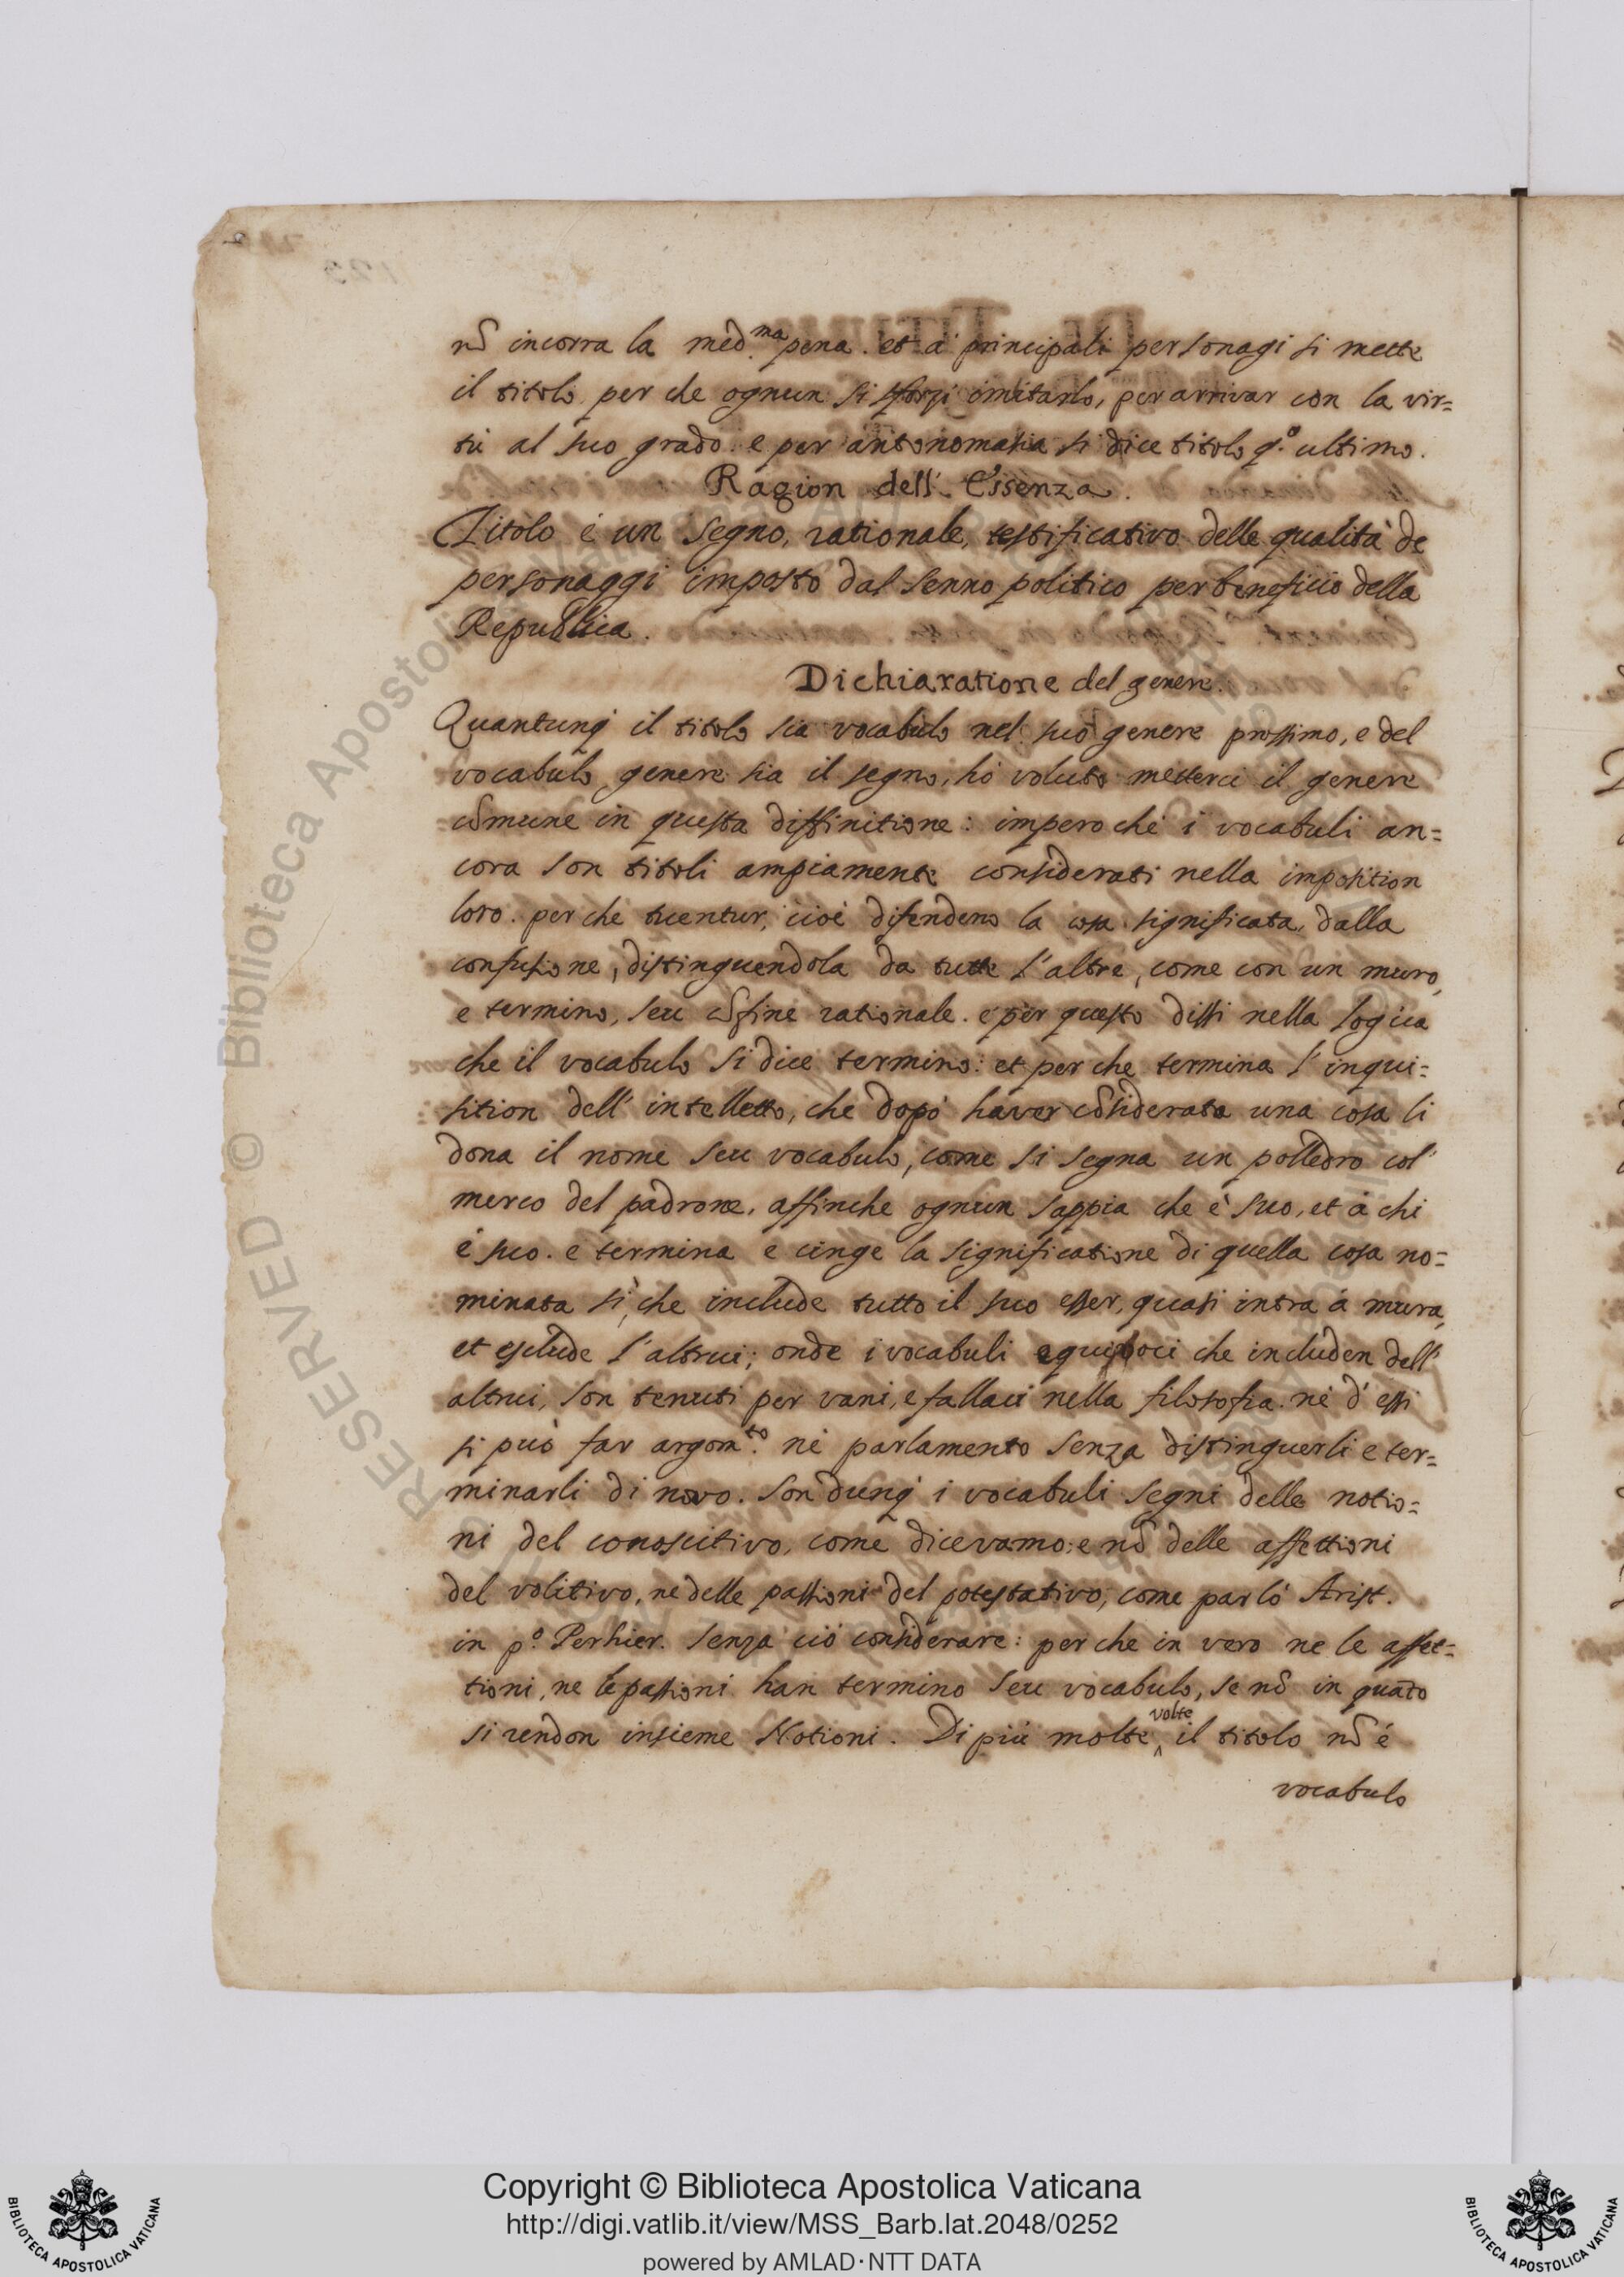 nõ incorra la med.ma pena. et a' principali personagi si mette
il titolo per che ognun si sforzi imitarlo, per arrivar con la vir=
tù al suo grado. e per antonomasia si dice titolo q.o ultimo.
Ragion dell' Essenza.
Titolo é un segno, rationale, testificativo delle qualità de
personaggi imposto dal senno politico per beneficio della
Republica.
Dichiaratione del genere.
Quantunq il titolo sia vocabulo nel suo genere prossimo, e del
vocabulo genere sia il segno, hò voluto metterci il genere
cõmune in questa diffinitione: impero che i vocabuli an=
cora son titoli ampiamente considerati nella imposition
loro. per che tuentur, cioè difendeno la cosa significata, dalla
confusione, distinguendola da tutte l'altre, come con un muro,
e termino, seu cõfine rationale. e per questo dissi nella Logica
che il vocabulo si dice termino: et per che termina l'inqui=
sition dell' intelletto, che dopò haver cõsiderata una cosa li
dona il nome seu vocabulo, come si segna un polledro col'
merco del padrone, affinche ognun sappia che è suo, et à chi
è suo. e termina e cinge la significatione di quella cosa no=
minata sì, che include tutto il suo esser, quasi intra à mura,
et esclude l'altrui; onde i vocabuli equivoci che includen dell'
altrui, son tenuti per vani, e fallaci nella filosofia. nè d'essi
si può far argom.to nè parlamento senza distinguerli e ter=
minarli di novo. Son dunq i vocabuli segni delle notio=
ni del conoscitivo, come dicevamo: e nõ delle affettioni
del volitivo, ne delle passioni del potestativo, come parlò Arist.
in p.o Perhier. senza ciò considerare: per che in vero ne le affet=
tioni, ne le passioni han termino seu vocabulo, se nõ in quãto
si rendon insieme Notioni. Di più molte volte il titolo nõ é
vocabulo
RESERVED © Biblioteca Apostolica
Copyright © Biblioteca Apostolica Vaticana
http://digi.vatlib.it/view/MSS_Barb.lat.2048/0252
powered by AMLAD·NTT DATA
BIBLIOTECA APOSTOLICA VATICANA
BIBLIOTECA APOSTOLICA VATICANA